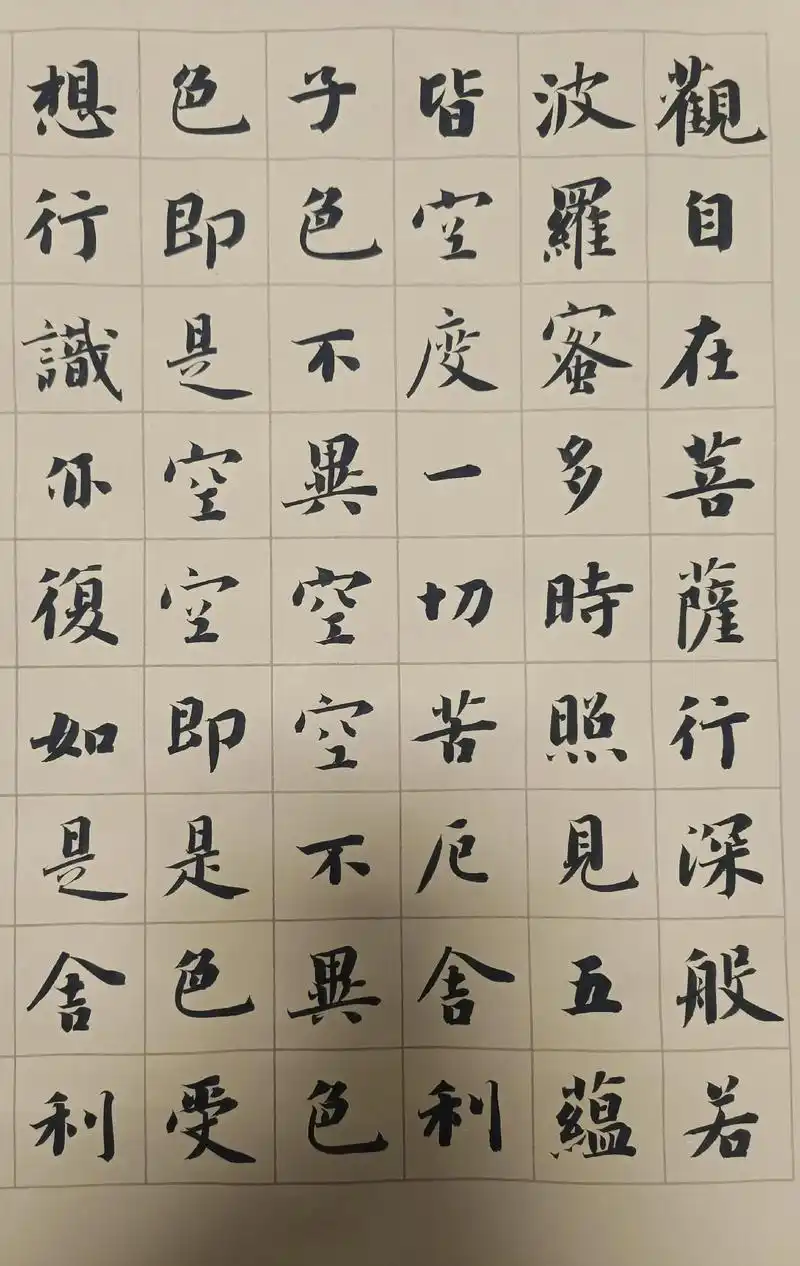 觀自在菩薩行深般若
波羅蜜多時照見五蘊
皆空度一切苦厄舍利
子色不異空空不異色
色即是空空即是色受
想行識亦復如是舍利